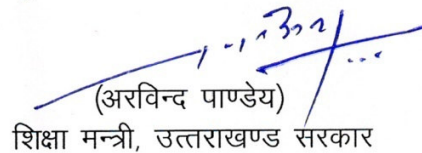 (अरविन्द पाण्डेय)
शिक्षा मन्त्री, उत्तराखण्ड सरकार